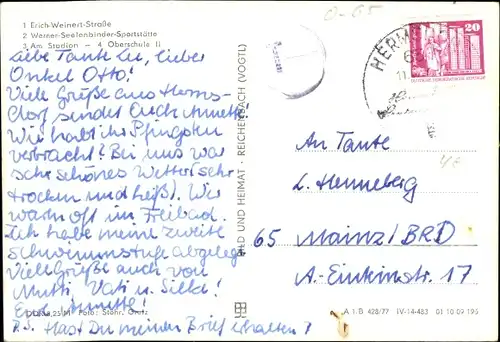 1 Erich-Weinert-Straße
2 Werner-Seelenbinder-Sportstätte
3 Am Stadion - 4 Oberschule II
Liebe Tante Lu, lieber
Onkel Otto!
Viele Grüße aus Herms-
dorf sendet Euch Annette.
Wie habt ihr Pfingsten
verbracht? Bei uns war
sehr schönes Wetter (sehr
trocken und heiß). Wir
warn oft im Freibad.
Ich habe meine zweite
Schwimmstufe abgelegt
Viele Grüße auch von
Mutti, Vati u. Silke!
Eure Annette!
P.S. Hast Du meinen Brief erhalten?
BILD UND HEIMAT · REICHENBACH (VOGTL)
HERMS
20
DEUTSCHE DEMOKRATISCHE REPUBLIK
An Tante
L. Henneberg
65 Mainz/BRD
A.-Einkinstr. 17
Foto: Stöhr, Greiz
A 1 B 428/77 IV-14-483 01 10 09 195